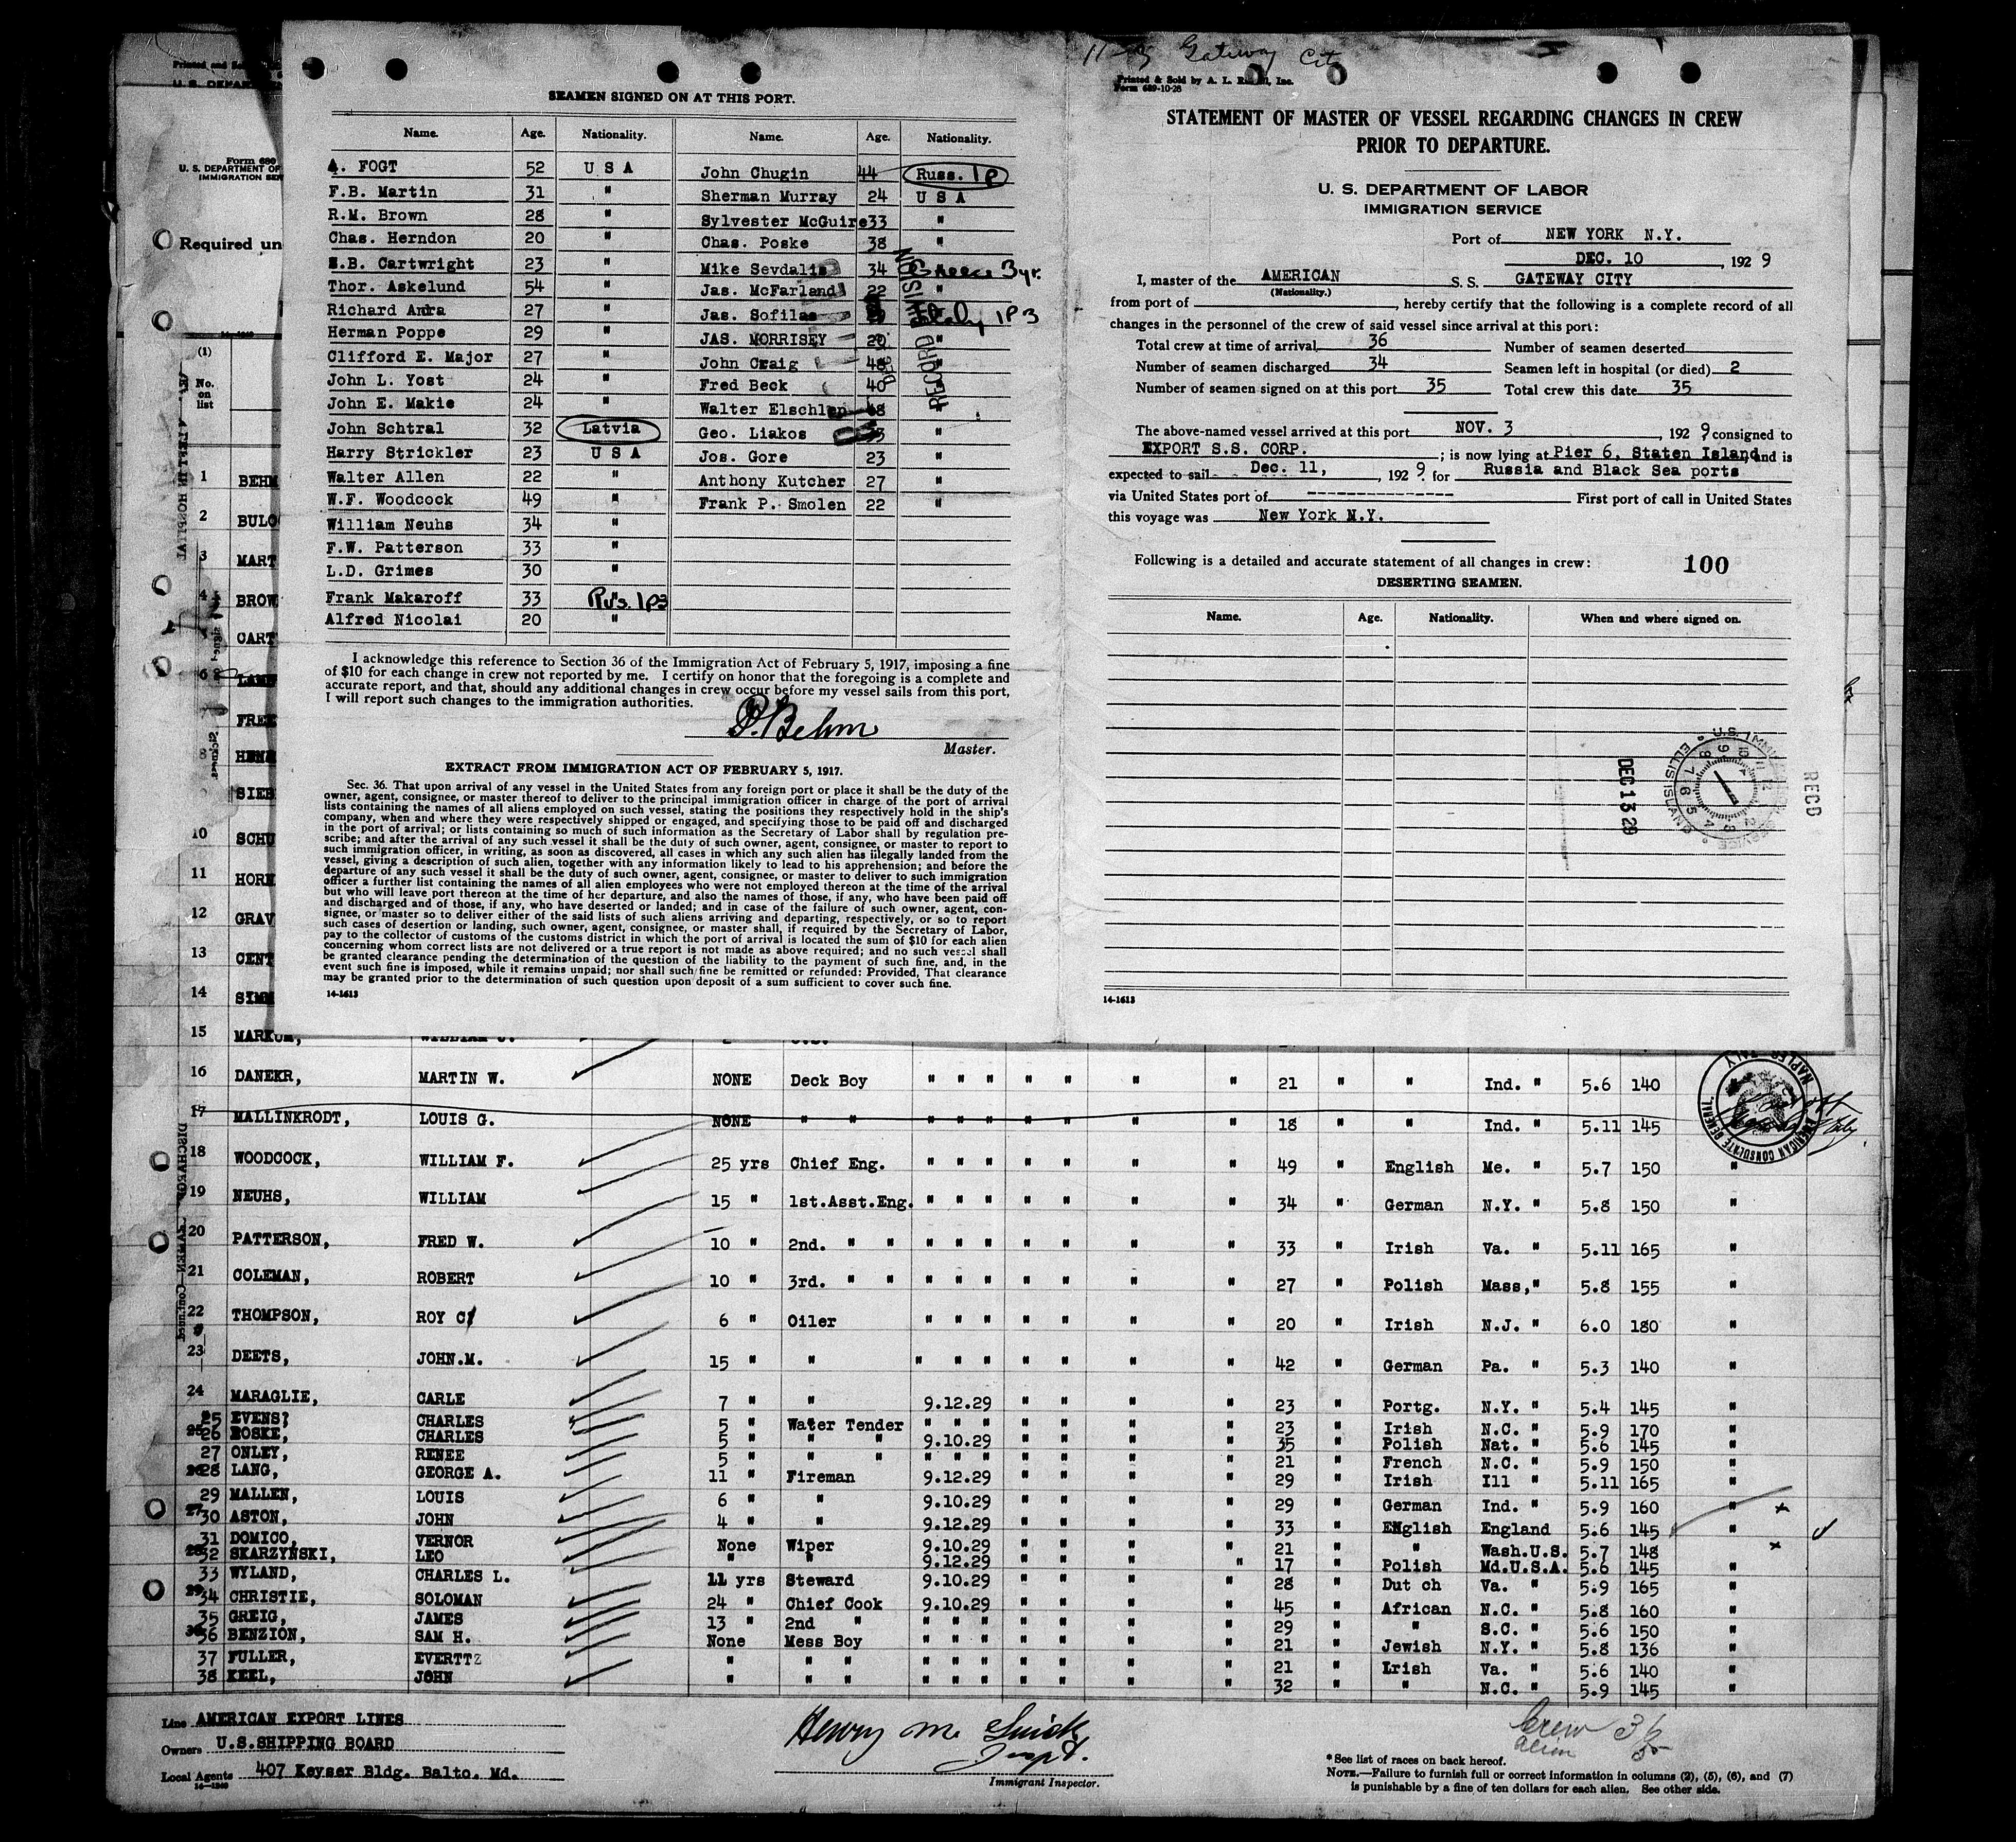 SEAMEN SIGNED ON AT THIS PORT.
Name. Age. Nationality. Name. Age. Nationality.
A. FOGT 52 U S A John Chugin 44 Russ. 1P
F.B. Martin 31 " Sherman Murray 24 U S A
R.M. Brown 28 " Sylvester McGuire 33 "
Chas. Herndon 20 " Chas. Poske 38 "
E.B. Cartwright 23 " Mike Sevdalis 34 Greece 3yr.
Thor. Askelund 54 " Jas. McFarland 22 "
Richard Anra 27 " Jas. Sofilas Italy 1P3
Herman Poppe 29 " JAS. MORRISEY 20 "
Clifford E. Major 27 " John Craig 48 "
John L. Yost 24 " Fred Beck 40 "
John E. Makie 24 " Walter Elschlen 48
John Schtral 32 Latvia Geo. Liakos 33 "
Harry Strickler 23 U S A Jos. Gore 23 "
Walter Allen 22 " Anthony Kutcher 27 "
W.F. Woodcock 49 " Frank P. Smolen 22 "
William Neuhs 34 "
F.W. Patterson 33 "
L.D. Grimes 30 "
Frank Makaroff 33 Rus. 1P3
Alfred Nicolai 20 "
RECORD DIVISION
I acknowledge this reference to Section 36 of the Immigration Act of February 5, 1917, imposing a fine
of $10 for each change in crew not reported by me. I certify on honor that the foregoing is a complete and
accurate report, and that, should any additional changes in crew occur before my vessel sails from this port,
I will report such changes to the immigration authorities.
P. Behm
Master.
EXTRACT FROM IMMIGRATION ACT OF FEBRUARY 5, 1917.
Sec. 36. That upon arrival of any vessel in the United States from any foreign port or place it shall be the duty of the
owner, agent, consignee, or master thereof to deliver to the principal immigration officer in charge of the port of arrival
lists containing the names of all aliens employed on such vessel, stating the positions they respectively hold in the ship's
company, when and where they were respectively shipped or engaged, and specifying those to be paid off and discharged
in the port of arrival; or lists containing so much of such information as the Secretary of Labor shall by regulation pre-
scribe; and after the arrival of any such vessel it shall be the duty of such owner, agent, consignee, or master to report to
such immigration officer, in writing, as soon as discovered, all cases in which any such alien has illegally landed from the
vessel, giving a description of such alien, together with any information likely to lead to his apprehension; and before the
departure of any such vessel it shall be the duty of such owner, agent, consignee, or master to deliver to such immigration
officer a further list containing the names of all alien employees who were not employed thereon at the time of the arrival
but who will leave port thereon at the time of her departure, and also the names of those, if any, who have been paid off
and discharged and of those, if any, who have deserted or landed; and in case of the failure of such owner, agent, con-
signee, or master so to deliver either of the said lists of such aliens arriving and departing, respectively, or so to report
such cases of desertion or landing, such owner, agent, consignee, or master shall, if required by the Secretary of Labor,
pay to the collector of customs of the customs district in which the port of arrival is located the sum of $10 for each alien
concerning whom correct lists are not delivered or a true report is not made as above required; and no such vessel shall
be granted clearance pending the determination of the question of the liability to the payment of such fine, and, in the
event such fine is imposed, while it remains unpaid; nor shall such fine be remitted or refunded: Provided, That clearance
may be granted prior to the determination of such question upon deposit of a sum sufficient to cover such fine.
14-1613
Gateway City
Printed & Sold by A. L. Inc.
Form 689-10-28
STATEMENT OF MASTER OF VESSEL REGARDING CHANGES IN CREW
PRIOR TO DEPARTURE.
U. S. DEPARTMENT OF LABOR
IMMIGRATION SERVICE
Port of NEW YORK N.Y.
DEC. 10, 1929
I, master of the AMERICAN S. S. GATEWAY CITY
(Nationality.)
from port of , hereby certify that the following is a complete record of all
changes in the personnel of the crew of said vessel since arrival at this port:
Total crew at time of arrival 36 Number of seamen deserted
Number of seamen discharged 34 Seamen left in hospital (or died) 2
Number of seamen signed on at this port 35 Total crew this date 35
The above-named vessel arrived at this port NOV. 3, 1929 consigned to
EXPORT S.S. CORP. ; is now lying at Pier 6, Staten Island, and is
expected to sail Dec. 11, , 1929 for Russia and Black Sea ports
via United States port of --------------- First port of call in United States
this voyage was New York N.Y.
Following is a detailed and accurate statement of all changes in crew: 100
DESERTING SEAMEN.
Name. Age. Nationality. When and where signed on.
RECD
DEC 13 29
ELLIS ISLAND
14-1613
Form 680
U. S. DEPARTMENT OF
IMMIGRATION SER
Required un
14-1240
(1)
No. on list
1 BEHM
2 BULO
3 MART
4 BROW
CART
6 LAMP
FREE
8 HEMM
SIEB
10 SCHU
11 HORN
12 GRAV
13 CENT
14 SIMM
15 MARKUM, WILLIAM J.
16 DANEKR, MARTIN W. NONE Deck Boy " " " " " " " 21 " " Ind. " 5.6 140
17 MALLINKRODT, LOUIS G. NONE " " " " " " " " " 18 " " Ind. " 5.11 145
18 WOODCOCK, WILLIAM F. 25 yrs Chief Eng. " " " " " " " 49 " English Me. " 5.7 150 "
19 NEUHS, WILLIAM 15 " 1st.Asst.Eng. " " " " " " " 34 " German N.Y. " 5.8 150 "
20 PATTERSON, FRED W. 10 " 2nd. " " " " " " " " " 33 " Irish Va. " 5.11 165 "
21 COLEMAN, ROBERT 10 " 3rd. " " " " " " " " " 27 " Polish Mass, " 5.8 155 "
22 THOMPSON, ROY C. 6 " Oiler " " " " " " " 20 " Irish N.J. " 6.0 180 "
23 DEETS, JOHN.M. 15 " " " " " " " " " 42 " German Pa. " 5.3 140 "
24 MARAGLIE, CARLE 7 " " 9.12.29 " " " " 23 " Portg. N.Y. " 5.4 145 "
25 EVENS, CHARLES 5 " Water Tender " " " " " " " 23 " Irish N.C. " 5.9 170 "
26 ROSKE, CHARLES 5 " " " 9.10.29 " " " " 35 " Polish Nat. " 5.6 145 "
27 ONLEY, RENEE 5 " " " " " " " " " " 21 " French N.C. " 5.9 150 "
28 LANG, GEORGE A. 11 " Fireman 9.12.29 " " " " 29 " Irish Ill " 5.11 165 "
29 MALLEN, LOUIS 6 " " 9.10.29 " " " " 29 " German Ind. " 5.9 160 "
30 ASTON, JOHN 4 " " 9.12.29 " " " " 33 " ENglish England 5.6 145 "
31 DOMICO, VERNOR None Wiper 9.10.29 " " " " 21 " " Wash.U.S. 5.7 148
32 SKARZYNSKI, LEO " " 9.12.29 " 17 " Polish Md.U.S.A. 5.6 145 "
33 WYLAND, CHARLES L. 11 yrs Steward 9.10.29 " " " " 28 " Dut ch Va. " 5.9 165 "
34 CHRISTIE, SOLOMAN 24 " Chief Cook 9.10.29 " " " " 45 " African N.C. " 5.8 160 "
35 GREIG, JAMES 13 " 2nd " " " " " " " " 29 " " S.C. " 5.6 150 "
36 BENZION, SAM H. None Mess Boy " " " " " " " 21 " Jewish N.Y. " 5.8 136 "
37 FULLER, EVERTTZ " " " " " " " " " " 21 " Irish Va. " 5.6 140 "
38 KEEL, JOHN " " " " " " " " " " 32 " " N.C. " 5.9 145 "
AMERICAN CONSULATE GENERAL NAPLES ITALY
Line AMERICAN EXPORT LINES
Owners U.S.SHIPPING BOARD
Local Agents 407 Keyser Bldg. Balto. Md.
14-1240
Immigrant Inspector.
Crew 36
alien
*See list of races on back hereof.
NOTE.—Failure to furnish full or correct information in columns (2), (5), (6), and (7)
is punishable by a fine of ten dollars for each alien. See other side.